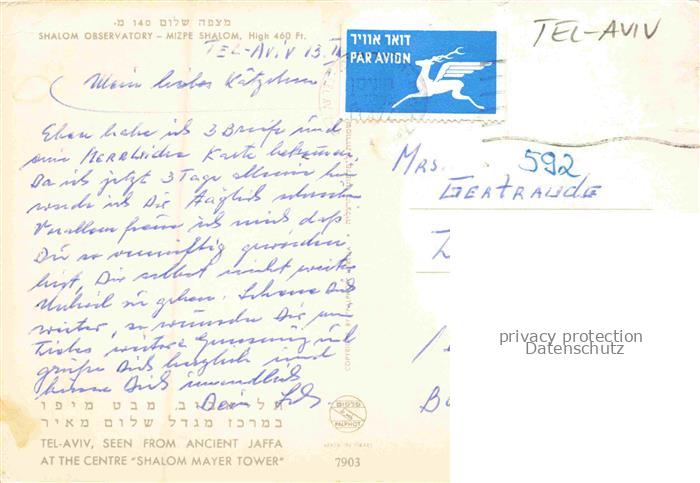 מצפה שלום 140 מ׳
SHALOM OBSERVATORY – MIZPE SHALOM, High 460 Ft.
TEL-AVIV 13.
Mein liebes Kätzchen
Eben habe ich 3 Briefe und
eine Karte bekommen
Da ich jetzt 3 Tage alleine
werde ich Dir täglich schreiben
Vorallem freue ich mich daß
Du so vernünftig geworden
bist, Dir selbst nicht weiter
zu geben. Schone Dich
weiter, so wünsche Dir mein
Liebes weitere Genesung und
grüße Dich herzlich und
küsse Dich unendlich
Dein
דואר אוויר
PAR AVION
TEL-AVIV
592
MRS.
GERTRAUDE
privacy protection
Datenschutz
תל-אביב, מבט מיפו
במרכז מגדל שלום מאיר
TEL-AVIV, SEEN FROM ANCIENT JAFFA
AT THE CENTRE "SHALOM MAYER TOWER"
PALPHOT
MADE IN ISRAEL
7903